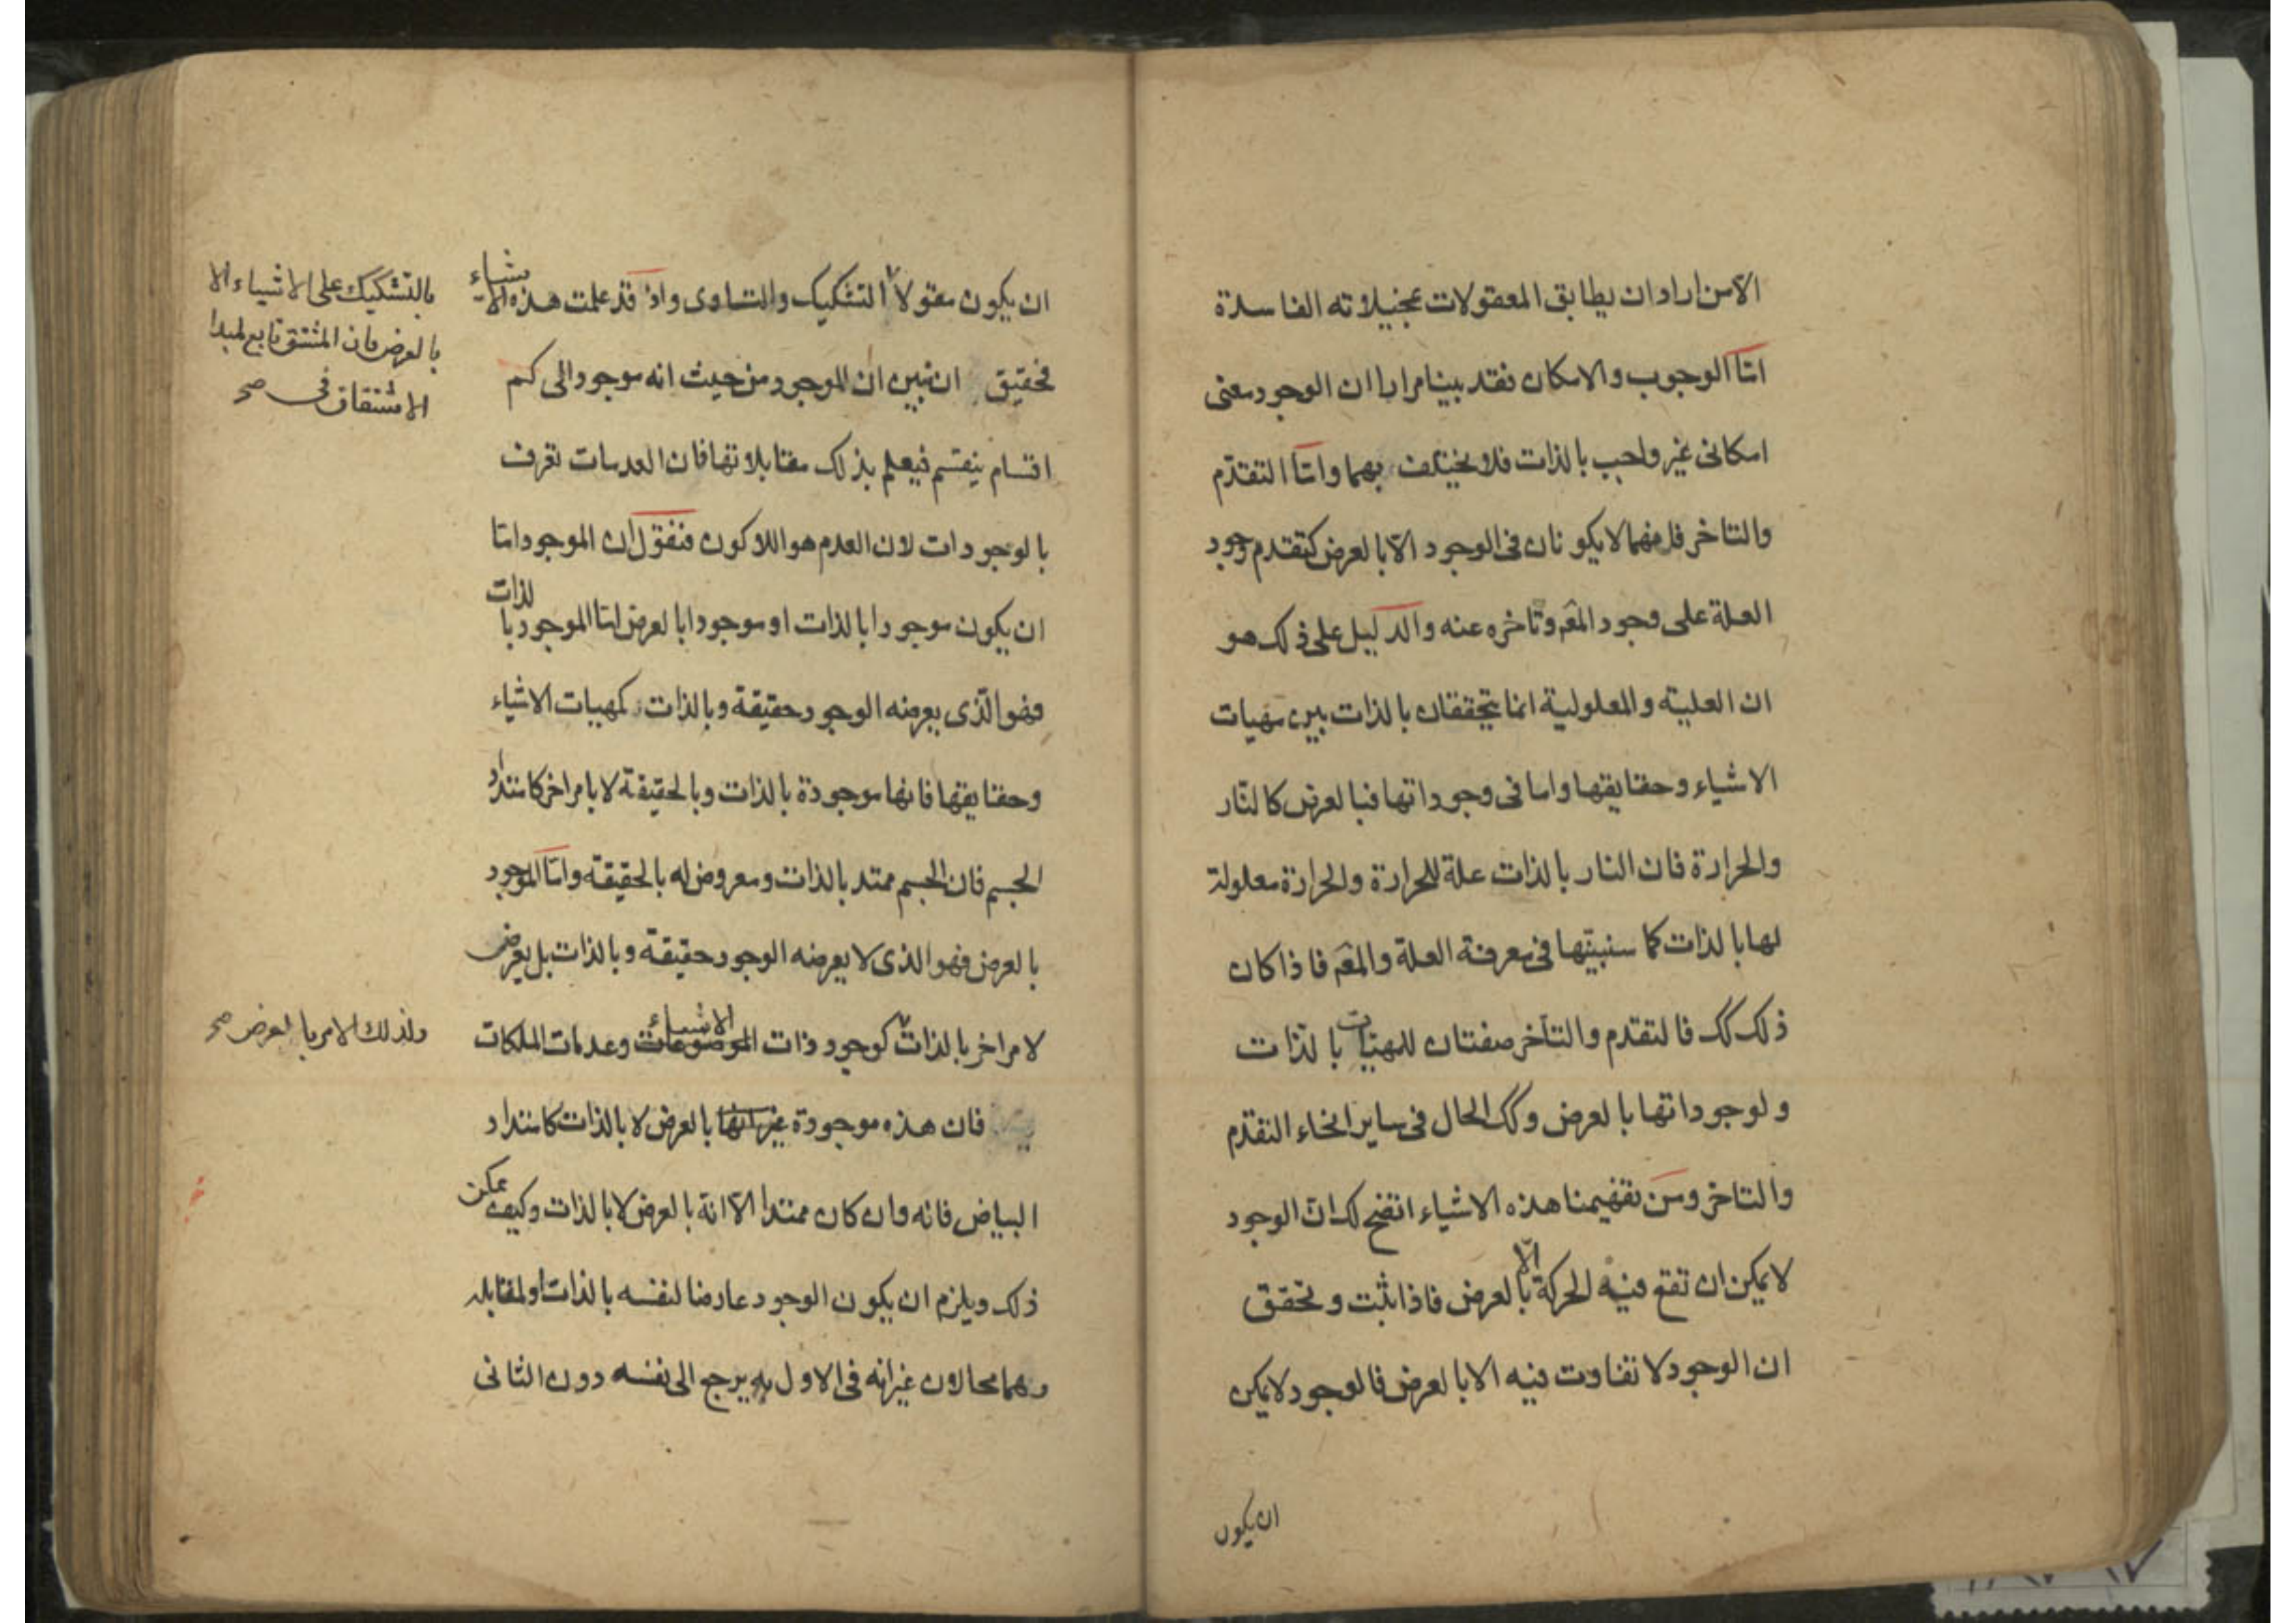 الا من اراد ان يطابق المعقولات بمخيلاته الفاسدة
امّا الوجوب والامكان فقد بينا مرارا ان الوجود معنى
امكانى غير واجب بالذات فلا يختلف بهما وامّا التقدّم
والتاخر فانهما لا يكونان فى الوجود الّا بالعرض كتقدم وجود
العلة على وجود المعَم وتاخره عنه والدليل على ذلك هو
ان العلية والمعلولية انما يتحققان بالذات بين مهيات
الاشياء وحقايقها واما فى وجوداتها فبالعرض كالنّار
والحرارة فان النار بالذات علة للحرارة والحرارة معلولة
لها بالذات كما سنبيّنها فى معرفة العلة والمعَم فاذا كان
ذلك كك فالتقدّم والتأخر صفتان للمهيّات بالذّات
ولوجوداتها بالعرض وكك الحال فى ساير انحاء التقدّم
والتاخر ومن تفهيمنا هذه الاشياء اتضح لك انّ الوجود
لا يمكن ان تقع فيه الحركة الّا بالعرض فاذا ثبت وتحقق
ان الوجود لا تفاوت فيه الا بالعرض فالوجود لا يمكن
ان يكون
ان يكون مقولا التشكيك والتساوى واذ قد علمت هذه الاشياء
بالتشكيك على الاشياء الا
بالعرض فان المشتق تابع لمبدا
الاشتقاق فى صح
فحقيق ان نبين ان الموجود من حيث انه موجود الى كم
اقسام ينقسم فيعلم بذلك مقابلاتها فان العدمات تعرف
بالوجودات لان العدم هو اللاكون فنقول ان الموجود امّا
ان يكون موجودا بالذات او موجودا بالعرض امّا الموجود بالذات
فهو الّذى يعرضه الوجود حقيقة وبالذات كمهيات الاشياء
وحقايقها فانها موجودة بالذات وبالحقيقة لا بامر اخر كامتداد
الجسم فان الجسم ممتد بالذات ومعروض له بالحقيقة وامّا الموجود
بالعرض فهو الذى لا يعرضه الوجود حقيقة وبالذات بل يعرض
لامر اخر بالذات كوجود ذات الموضوعات الاشياء وعدمات الملكات
ولذلك الامر بالعرض صح
فان هذه موجودة غير انها بالعرض لا بالذات كامتداد
البياض فانه وان كان ممتدا الّا انّه بالعرض لا بالذات وكيف يمكن
ذلك ويلزم ان يكون الوجود عارضا لنفسه بالذات او لمقابله
وهما محالان غير انه فى الاول يرجع الى نفسه دون الثانى